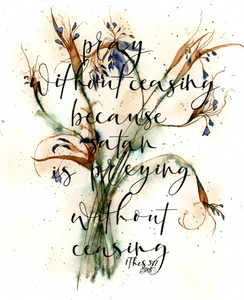 pray
without ceasing
because
satan
is preying
without
ceasing
1Thes 5:17